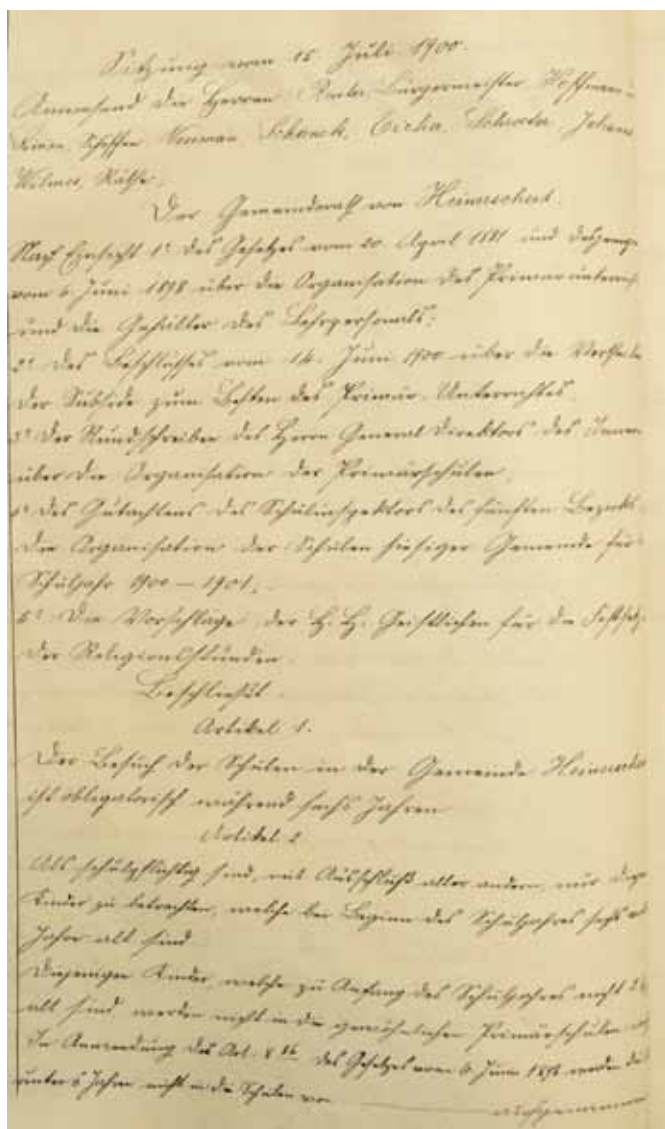 Sitzung vom 15 Juli 1900.
Anwesend die Herren Bürgermeister
Schöffen Neuman, Schanck, Eicher, Schroeder, Johanns
Wilmes, Räthe.
Der Gemeinderath von Heinerscheid.
Nach Einsicht 1° des Gesetzes vom 20. April 1881 und desjenigen
vom 6 Juni 1898 über die Organisation des Primärunterrichts
und die Gehälter des Lehrpersonals;
2° des Beschlusses vom 14. Juni 1900 über die
der Subside zum Besten des Primär-Unterrichtes
3° der Rundschreiben des Herrn General Direktors des Innern
über die Organisation der Primärschulen,
4° des Gutachtens des Schulinspektors des fünften Bezirks
die Organisation der Schulen hiesiger Gemeinde für
Schuljahr 1900 – 1901,
5° Die Vorschläge der H. H. Geistlichen für die
der Religionsstunden.
Beschließt.
Artikel 1.
Der Besuch der Schulen in der Gemeinde Heinerscheid
ist obligatorisch während sechs Jahren
Artikel 2
Als schulpflichtig sind, mit Ausschluß aller andern, nur
Kinder zu betrachten, welche bei Beginn des Schuljahres sechs
Jahre alt sind
Diejenigen Kinder welche zu Anfang des Schuljahres nicht
alt sind werden nicht in die gewöhnlichen Primärschulen
In Anwendung des Art. des Gesetzes vom 6 Juni 1898 werden
unter 6 Jahren nicht in die Schulen
aufgenommen